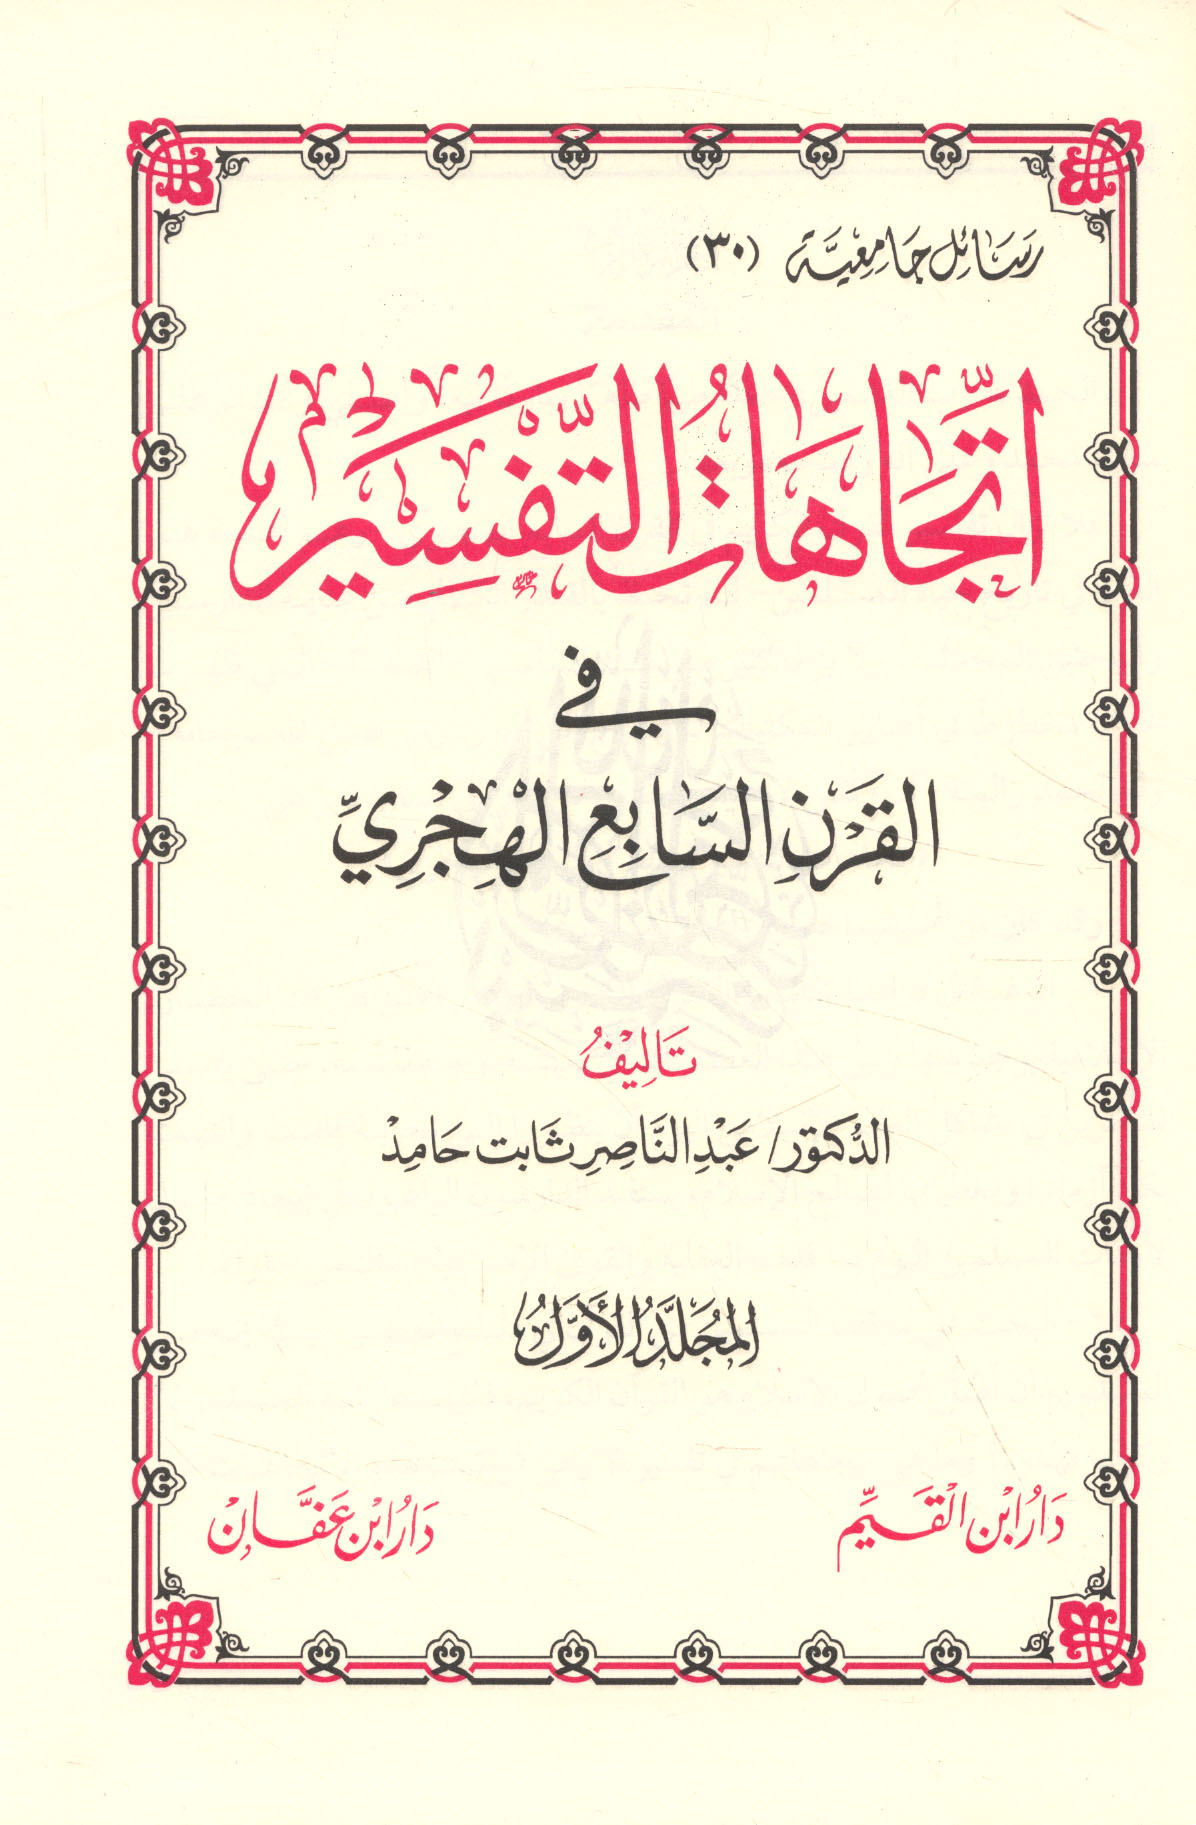 رسائل جامعية (٣٠)
اتِّجَاهَاتُ التَّفْسِيْرِ
في
القَرْنِ السَّابِعِ الهِجْرِيِّ
تَأليفُ
الدُّكتور/ عَبْدِ النَّاصِرِ ثَابت حَامِدْ
المُجَلَّدُ الأَوَّلُ
دَارُ ابْن القَيِّمِ
دَارُ ابْن عَفَّانْ